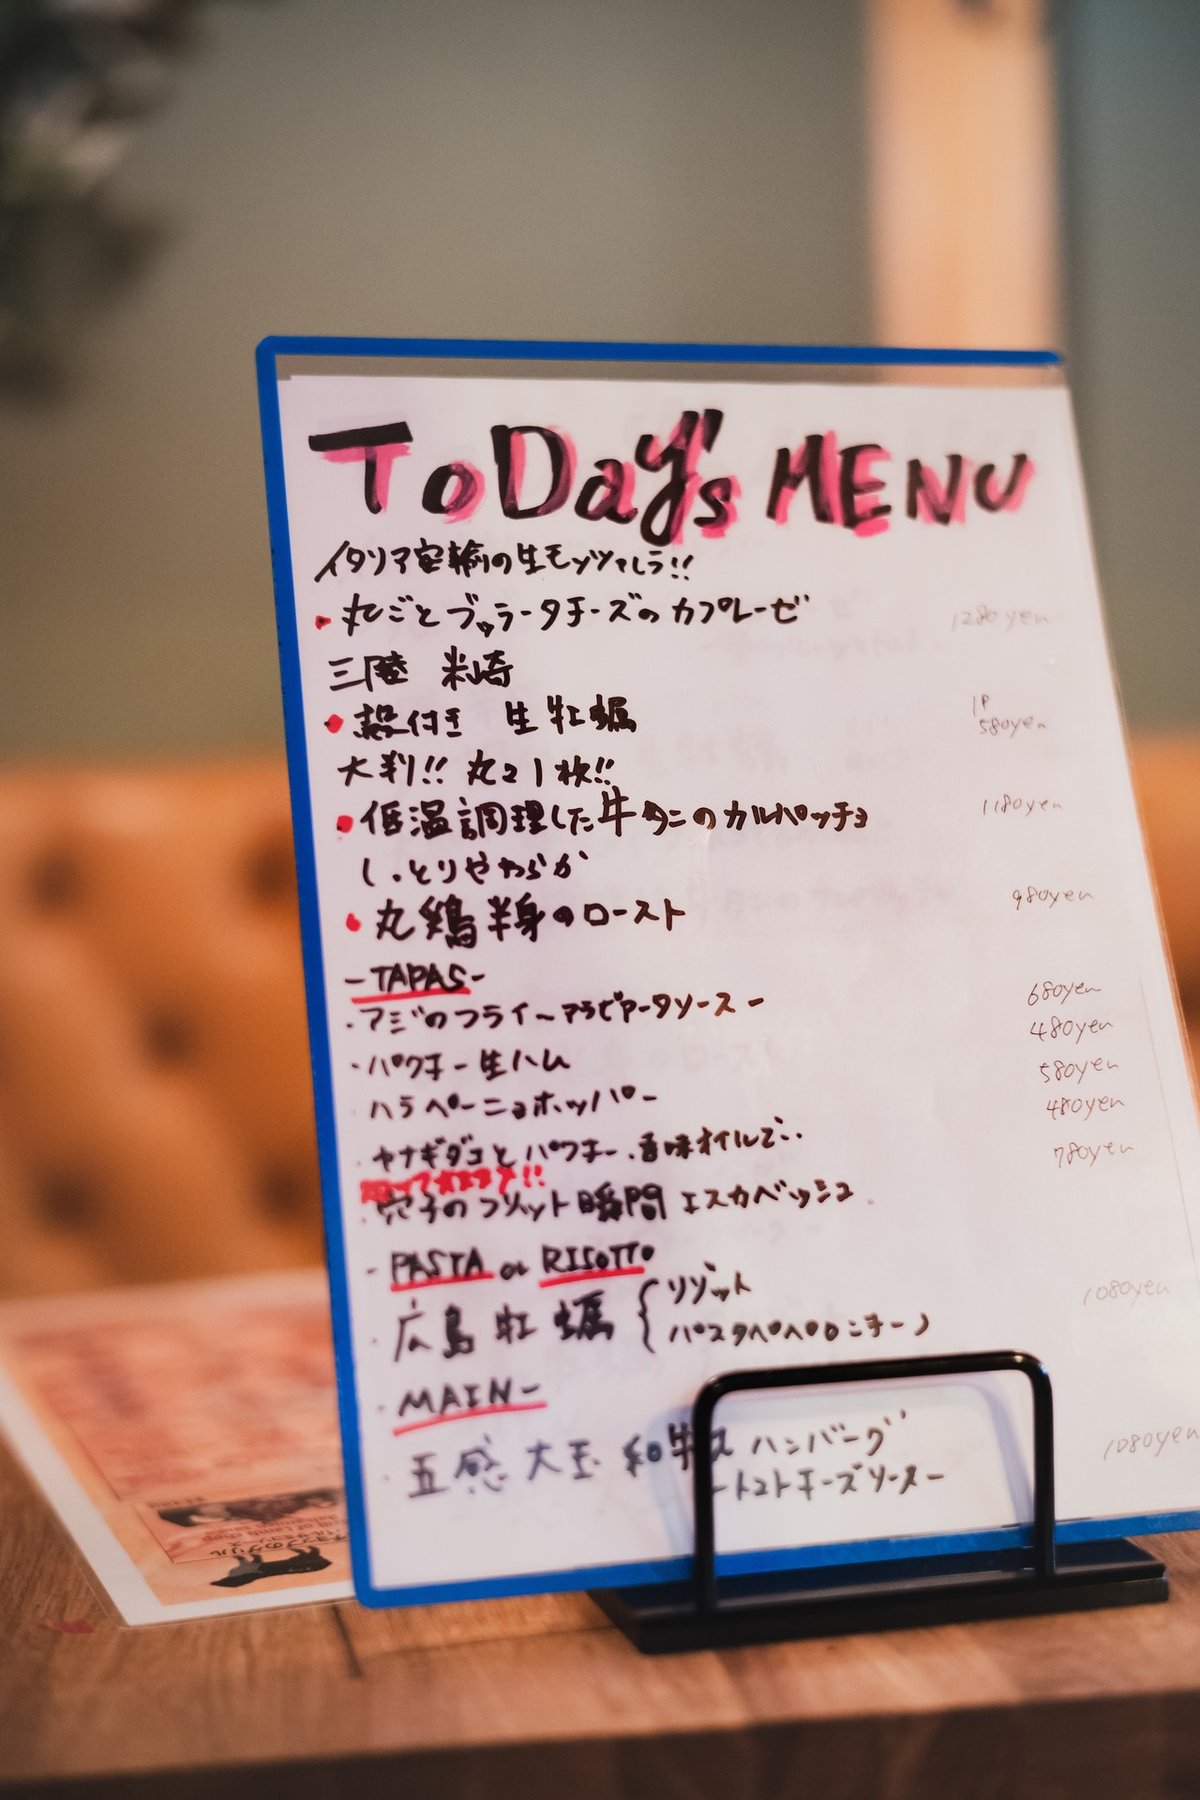 ToDay's MENU
イタリア空輸の生モッツァレラ!!
・丸ごとブッラータチーズのカプレーゼ 1280yen
三陸 米崎
・殻付き 生牡蠣 1P 580yen
大判!! 丸ごと1枚!!
・低温調理した牛タンのカルパッチョ 1180yen
しっとりやわらか
・丸鶏半身のロースト 980yen
-TAPAS-
・アジのフライ〜アラビアータソースー 680yen
・パクチー生ハム 480yen
ハラペーニョホッパー 580yen
・ヤナギダコとパクチー、香味オイルで.. 480yen
オススメ!!
・穴子のフリット瞬間エスカベッシュ 780yen
- PASTA or RISOTTO
・広島牡蠣 リゾット 1080yen
パスタペペロンチーノ
・MAIN-
・五感 大玉 和牛 ハンバーグ 1080yen
-トマトチーズソースー